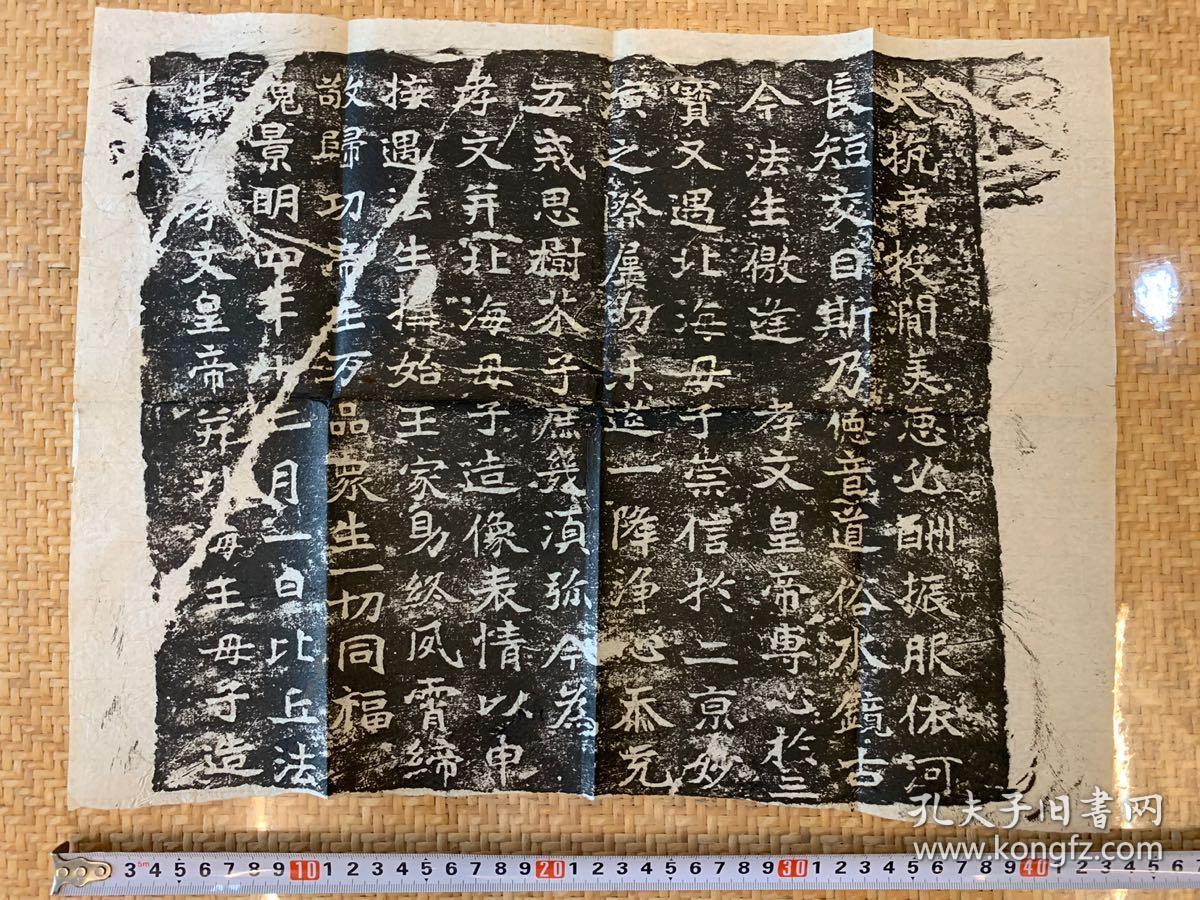 夫抗音投澗美惡必酬振服依河
長短交目斯乃德音道俗水鏡古
今法生儌逢 孝文皇帝專心於三
寶又遇北海母子崇信於二京妙
演之際屢叨末筵一降淨心忝充
五戒思樹芥子庶幾湏弥今為
孝文并北海母子造像表情以申
接遇法生構始王家助終夙霄締
敬歸功帝王万品眾生一切同福
魏景明四年十二月一日比丘法
生為孝文皇帝并北海王母子造
孔夫子旧书网
www.kongfz.com
3 5m 4 5 6 7 8 9 10 1 2 3 4 5 6 7 8 9 20 1 2 3 4 5 6 7 8 9 30 1 2 3 4 5 6 7 8 9 40 1 2 3 4 5 6